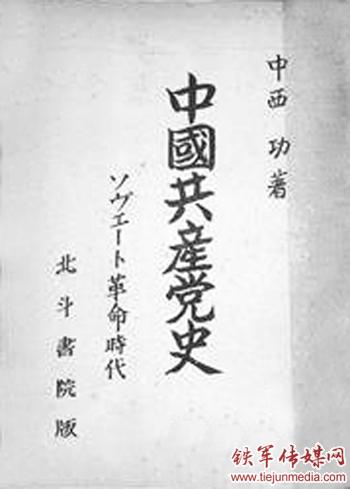 中西 功著
中國共産党史
ソヴエート革命時代
北斗書院版
铁军传媒网
www.tiejunmedia.com